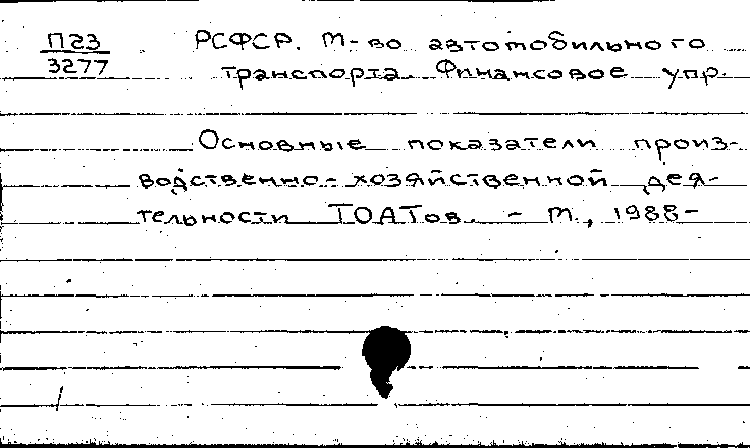 П23
3277
РСФСР. М-во автомобильного
транспорта. Финансовое упр.
Основные показатели произ-
водственно-хозяйственной дея-
тельности ТОАТов. - М., 1988-